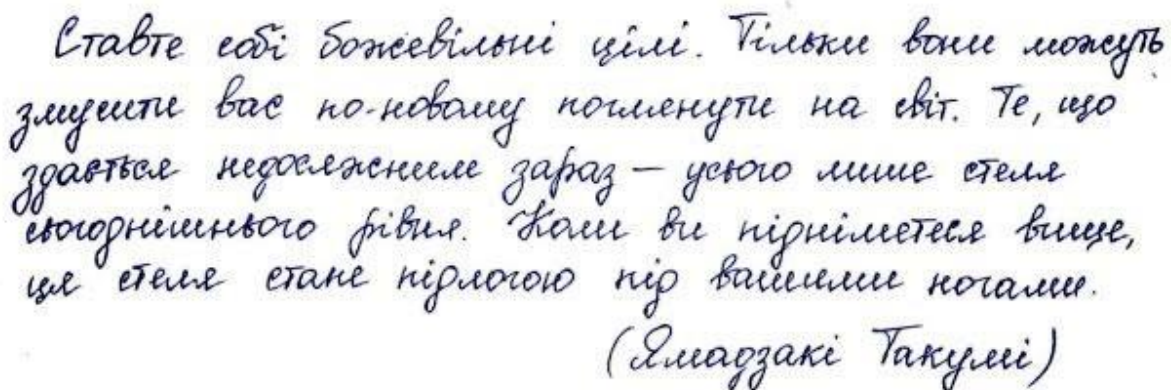 Ставте собі божевільні цілі. Тільки вони можуть
змусити вас по-новому поглянути на світ. Те, що
здається недосяжним зараз — усього лише стеля
сьогоднішнього рівня. Коли ви піднiметеся вище,
ця стеля стане підлогою під вашими ногами.
(Ямадзакі Такумі)